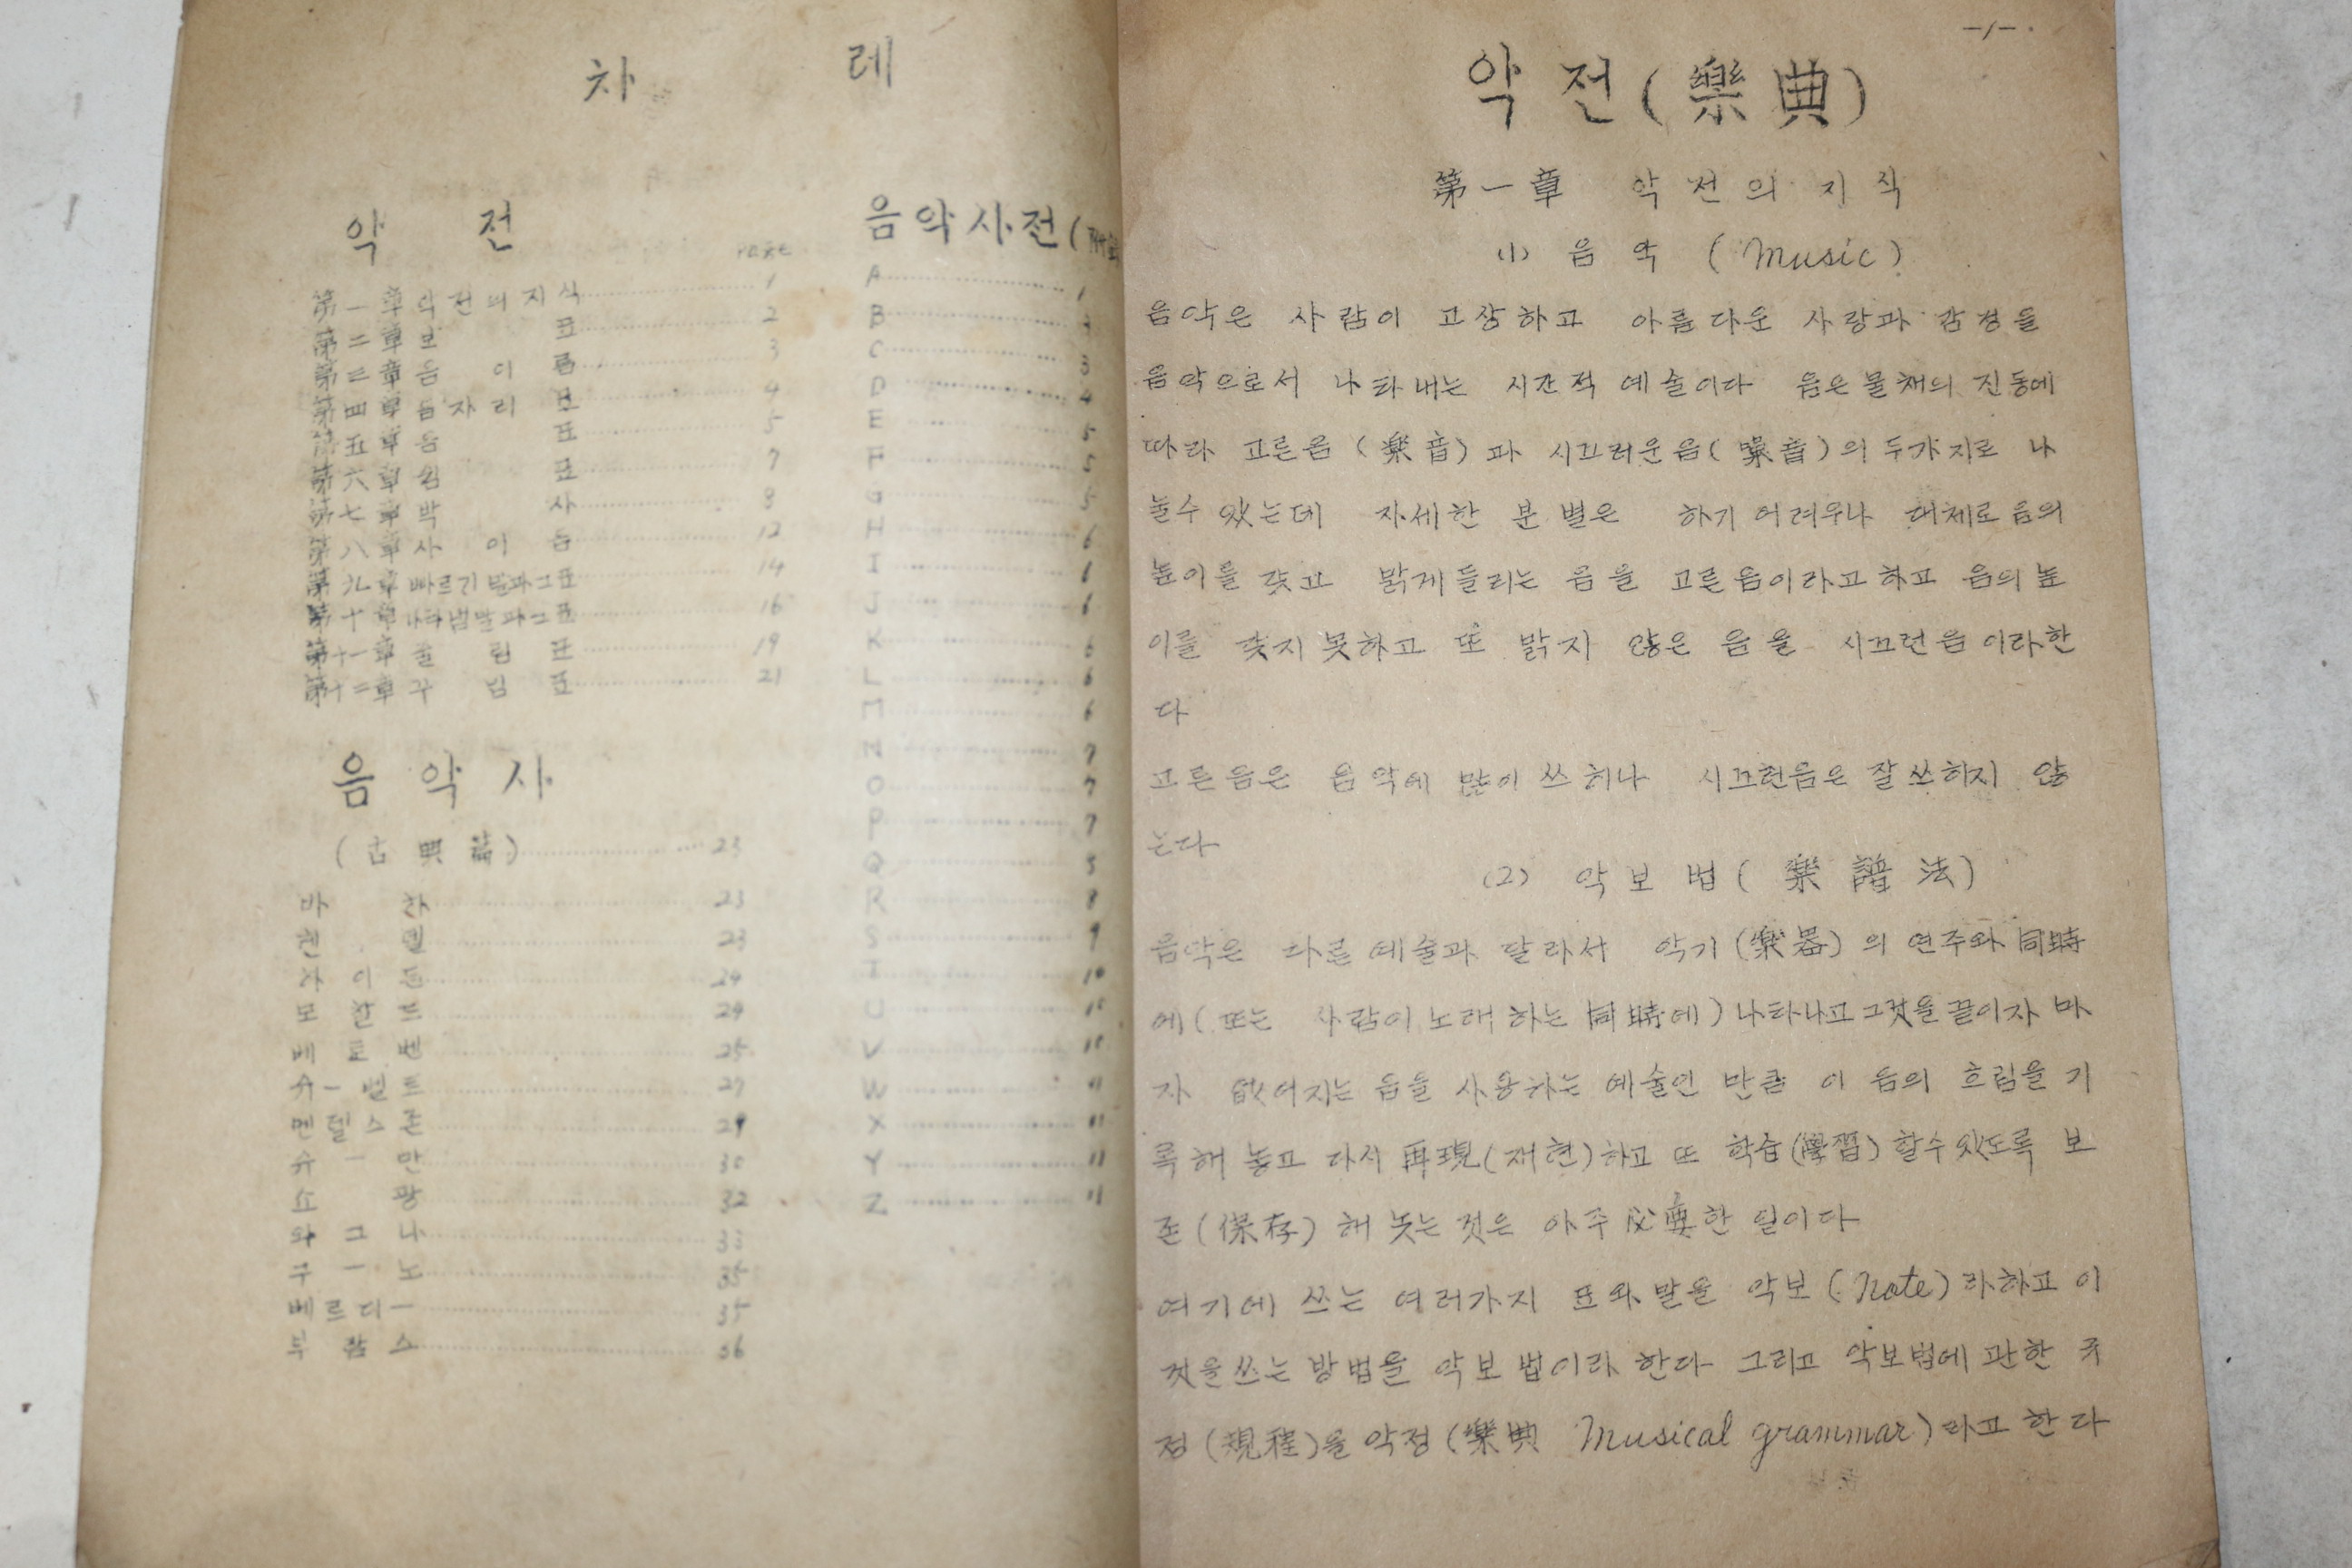 차 레
악 전
PAGE
第一章 악전의지식 1
第二章 보 표 2
第三章 음 이 름 3
第四章 음자리 표 4
第五章 음 표 5
第六章 쉼 표 7
第七章 박 사 8
第八章 사 이 음 12
第九章 빠르기말과그표 14
第十章 나타냄말과그표 16
第十一章 줄 림 표 19
第十二章 꾸 밈 표 21
음 악 사
(古 典 篇) 23
바 하 23
헨 델 23
하 이 든 24
모 잘 트 24
베 토 벤 25
슈ー벨트 27
멘델스존 29
슈 ー 만 30
쇼 팡 32
와 그 나 33
구 ー 노 35
베르디ー 35
부 람 스 36
음악사전(附
A 1
B
C 3
D 4
E 5
F 5
G 5
H 6
I 6
J 6
K 6
L 6
M 6
N 7
O 7
P 7
Q
R 8
S 9
T 10
U 10
V 10
W 11
X 11
Y 11
Z 11
-1-
악 전 (樂 典)
第一章 악전의 지식
(1) 음 악 (Music)
음악은 사람이 고상하고 아름다운 사랑과 감정을
음악으로서 나타내는 시간적 예술이다 음은 물체의 진동에
따라 고른음 (楽音) 과 시끄러운음(噪音)의 두가지로 나
눌수 있는데 자세한 분별은 하기 어려우나 대체로 음의
높이를 갖고 맑게들리는 음을 고른음이라고하고 음의 높
이를 갖지못하고 또 맑지 않은 음을 시끄런음 이라한
다
고른음은 음악에 많이 쓰히나 시끄런음은 잘쓰히지 않
는다
(2) 악보법(楽譜法)
음악은 다른 예술과 달라서 악기(楽器)의 연주와 同時
에(또는 사람이 노래하는 同時에)나타나고 그것을 끝이자 마
자 없어지는 음을 사용하는 예술인 만큼 이 음의 흐림을 기
록해 놓고 다시 再現(재현)하고 또 학습(學習)할수있도록 보
존(保存)해 놋는 것은 아주 必要한 일이다
여기에 쓰는 여러가지 표와 말을 악보(Note)라하고 이
것을쓰는 방법을 악보법이라 한다 그리고 악보법에 관한 규
정(規程)을 악정(樂典 Musical grammar)라고 한다